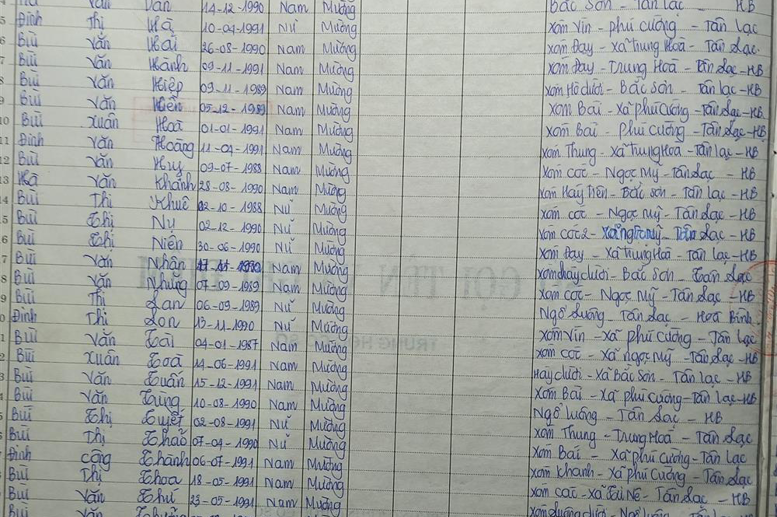 Văn 14-12-1990 Nam Mường Bắc Sơn - Tân lạc - HB
5 Đinh Thị Hà 10-04-1991 Nữ Mường xóm Vín - phú cường - Tân Lạc
6 Bùi Văn Hải 26-08-1990 Nam Mường xóm Đay - xã Trung Hoà - Tân Lạc
7 Bùi Văn Hành 09-11-1991 Nam Mường xóm Đay - Trung Hoà - Tân Lạc - HB
8 Bùi Văn Hiệp 09-11-1989 Nam Mường xóm Hồ dưới - Bắc Sơn - Tân lạc - HB
9 Bùi Văn Hiến 05-12-1989 Nam Mường xóm Bái - xã phú Cường - Tân Lạc - HB
10 Bùi Xuân Hoà 01-01-1991 Nam Mường xóm Bái - phú cường - Tân Lạc - HB
11 Đinh Văn Hoàng 11-04-1991 Nam Mường xóm Thung - xã Trung Hoà - Tân lạc - HB
12 Bùi Văn Huy 09-07-1988 Nam Mường xóm cóc - Ngọc Mỹ - Tân Lạc - HB
13 Hà Văn Khánh 28-08-1990 Nam Mường xóm Hày Trên - Bắc sơn - Tân lạc - HB
14 Bùi Thị Khuê 02-10-1988 Nữ Mường xóm cóc - Ngọc Mỹ - Tân Lạc - HB
15 Bùi Thị Nụ 02-12-1990 Nữ Mường xóm cóc 2 - xã ngọc mỹ - Tân Lạc - HB
6 Bùi Thị Niên 30-06-1990 Nữ Mường xóm Đay - xã Trung Hoà - Tân lạc - HB
7 Bùi Văn Nhân Nam Mường xóm hày dưới - Bắc Sơn - Tân Lạc
8 Bùi Văn Nhưng 07-09-1989 Nam Mường xóm cóc - Ngọc Mỹ - Tân Lạc - HB
9 Bùi Thị Lan 06-09-1989 Nữ Mường Ngổ Luông - Tân Lạc - Hoà Bình
0 Đinh Thị Lon 13-11-1990 Nữ Mường xóm Vín - xã phú Cường - Tân Lạc
1 Bùi Văn Tài 04-01-1987 Nam Mường xóm cóc - xã ngọc Mỹ - Tân Lạc - HB
2 Bùi Xuân Toà 14-06-1991 Nam Mường Hày dưới - xã Bắc Sơn - Tân lạc - HB
3 Bùi Văn Tuấn 15-12-1991 Nam Mường xóm Bái - xã phú cường - Tân Lạc - HB
4 Bùi Văn Tùng 10-08-1990 Nam Mường Ngổ luông - Tân Lạc - HB
5 Bùi Thị Tuyết 02-08-1991 Nữ Mường xóm Thung - Trung Hoà - Tân Lạc
6 Bùi Thị Thảo 07-04-1990 Nữ Mường xóm Bái - xã phú Cường - Tân Lạc
Đinh công Thành 06-07-1991 Nam Mường xóm khanh - xã phú Cường - Tân Lạc
8 Bùi Thị Thoa 18-05-1991 Nam Mường xóm cóc - Tân Lạc - HB
Bùi Văn Thứ 23-05-1991 Nam Mường
Bùi Văn Nam Mường